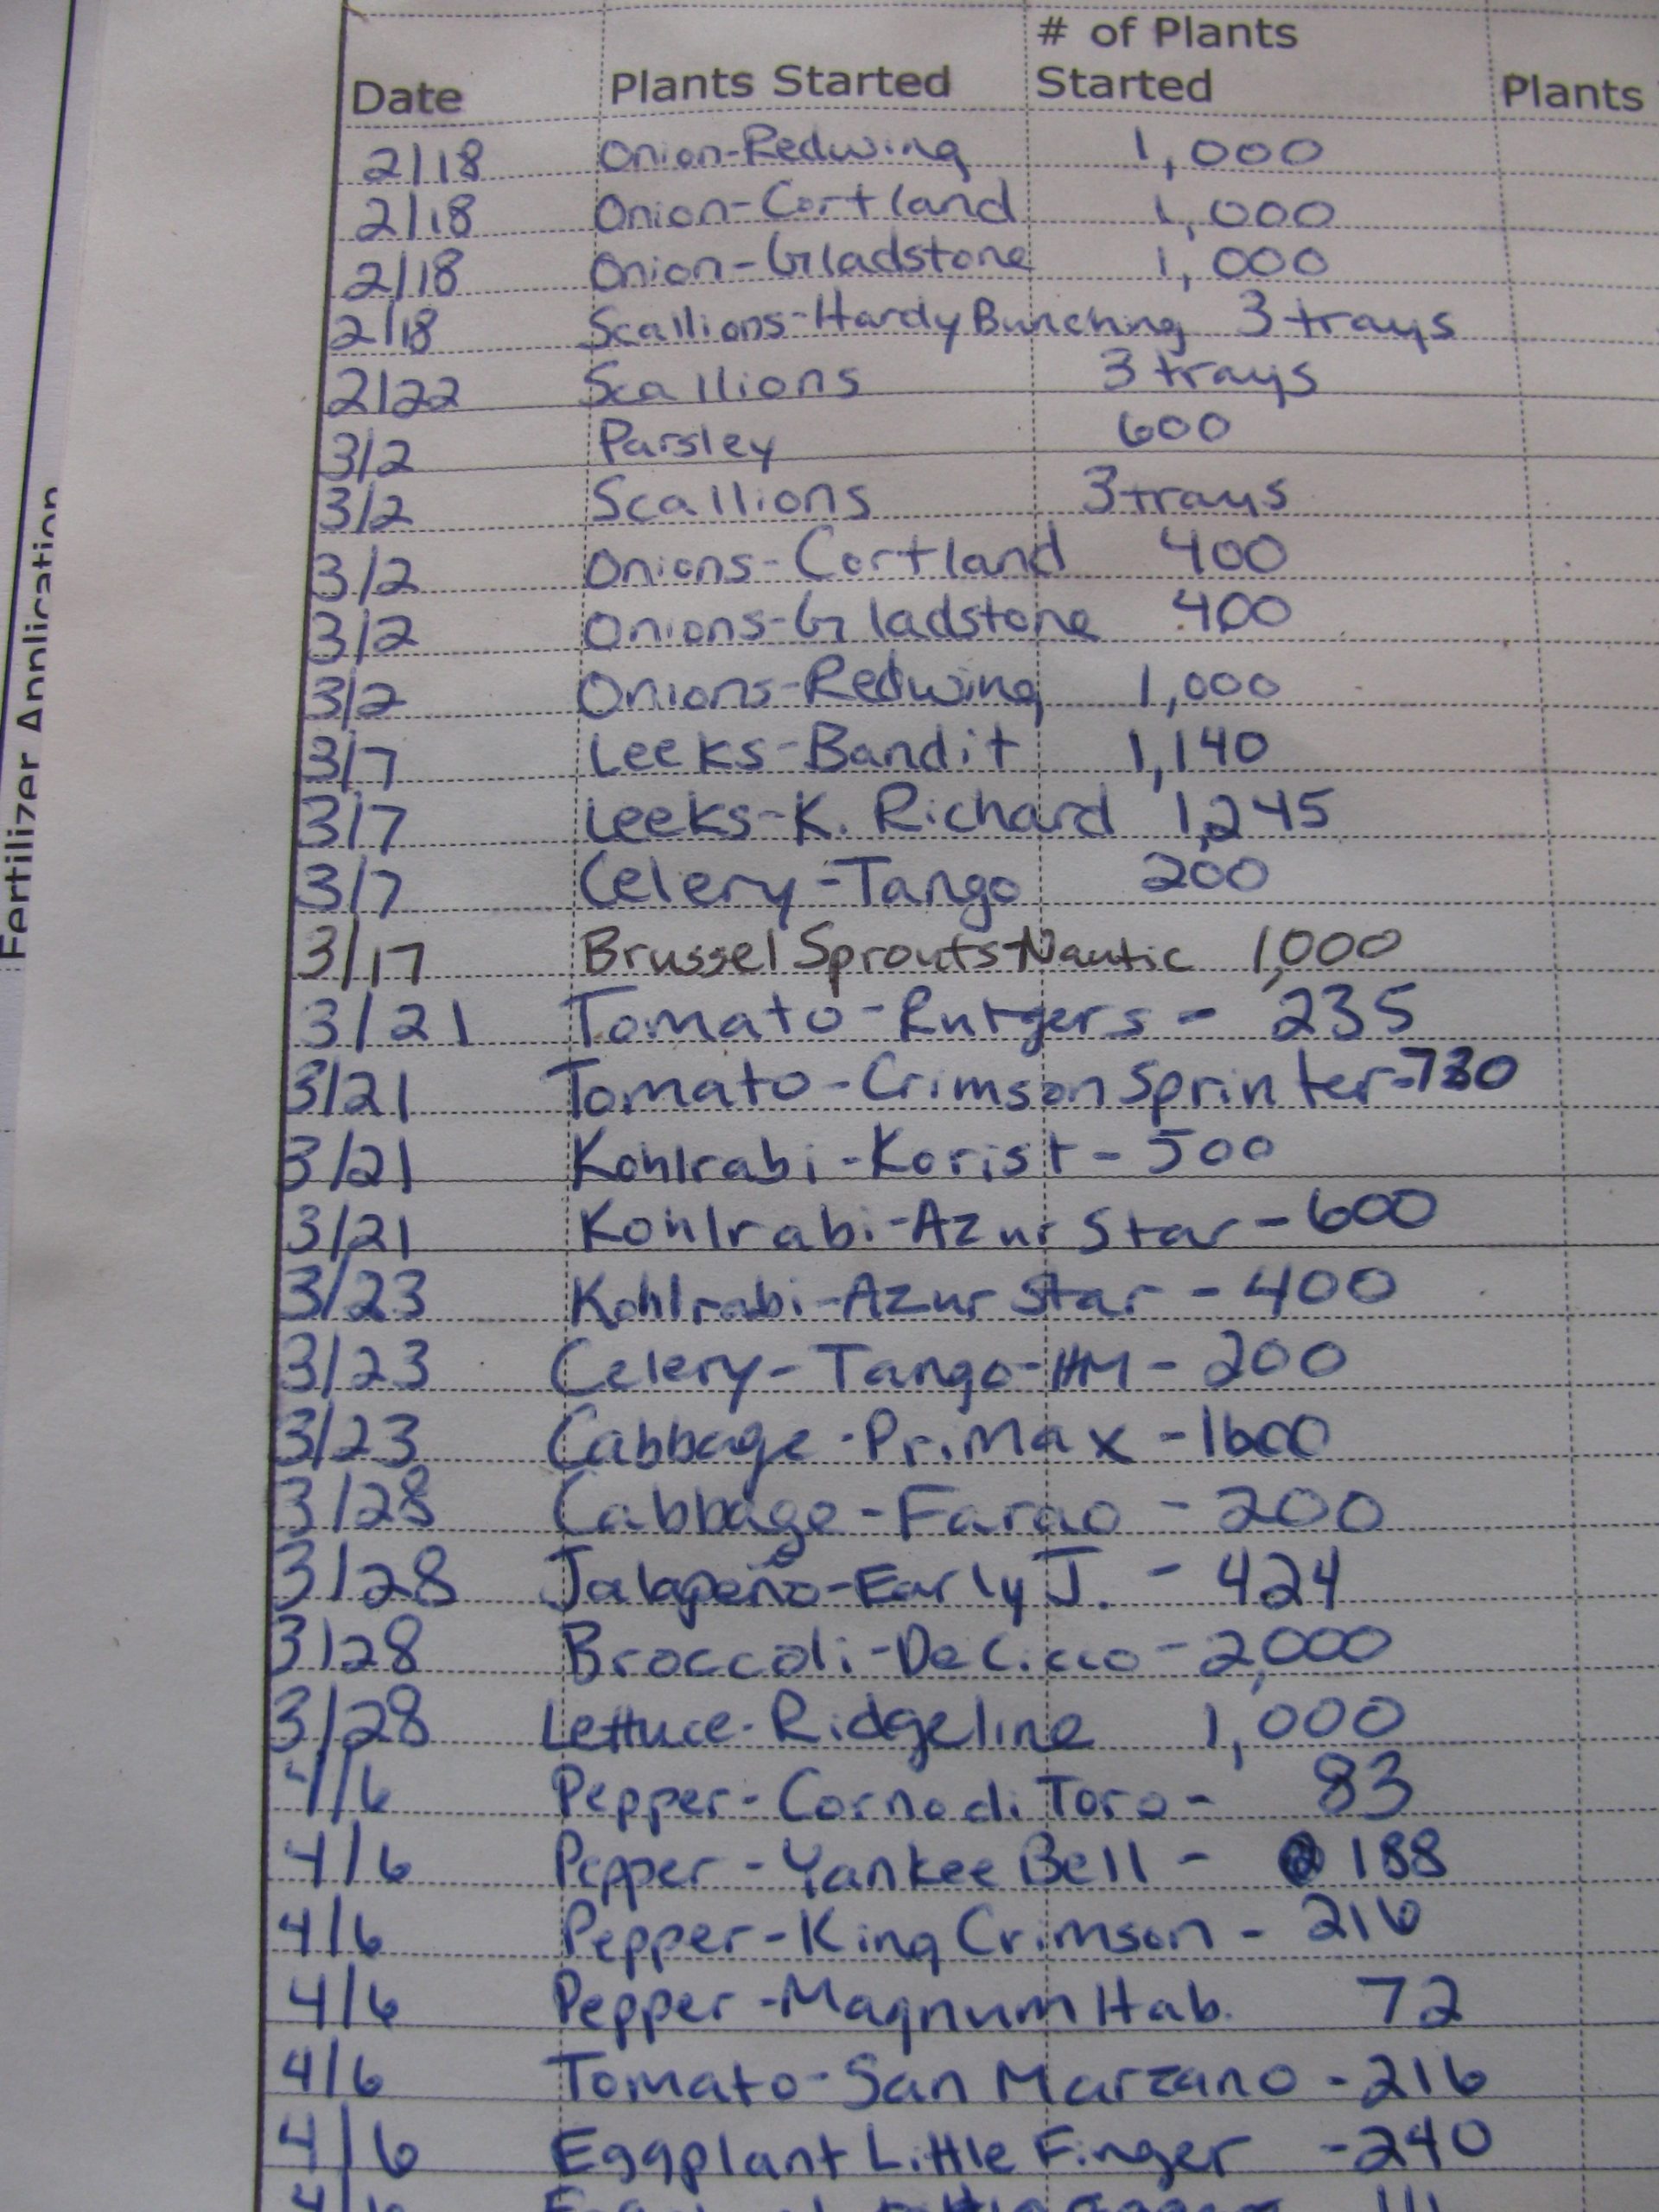 Fertilizer Application
# of Plants
Date Plants Started Started Plants
2/18 Onion-Redwing 1,000
2/18 Onion-Cortland 1,000
2/18 Onion-Gladstone 1,000
2/18 Scallions-Hardy Bunching 3 trays
2/22 Scallions 3 trays
3/2 Parsley 600
3/2 Scallions 3 trays
3/2 Onions-Cortland 400
3/2 Onions-Gladstone 400
3/2 Onions-Redwing 1,000
3/7 Leeks-Bandit 1,140
3/7 Leeks-K. Richard 1,245
3/7 Celery-Tango 200
3/17 Brussel Sprouts-Nautic 1,000
3/21 Tomato-Rutgers - 235
3/21 Tomato-Crimson Sprinter-730
3/21 Kohlrabi-Korist - 500
3/21 Kohlrabi-Azur Star - 600
3/23 Kohlrabi-Azur Star - 400
3/23 Celery-Tango-HM - 200
3/23 Cabbage-PriMax - 1600
3/28 Cabbage-Farao - 200
3/28 Jalapeño-Early J. - 424
3/28 Broccoli-DeCicco - 2,000
3/28 Lettuce-Ridgeline 1,000
4/6 Pepper-Corno di Toro - 83
4/6 Pepper-Yankee Bell - 188
4/6 Pepper-King Crimson - 216
4/6 Pepper-Magnum Hab. 72
4/6 Tomato-San Marzano - 216
4/6 Eggplant Little Finger - 240
4/6